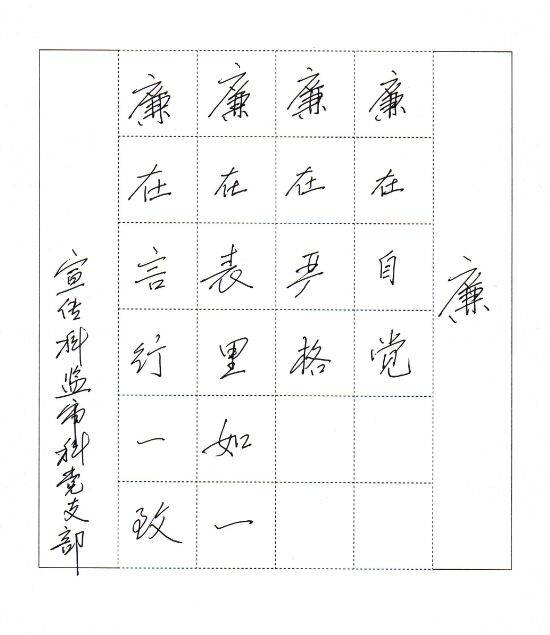 廉
廉在自觉
廉在严格
廉在表里如一
廉在言行一致
宣传科监审科党支部